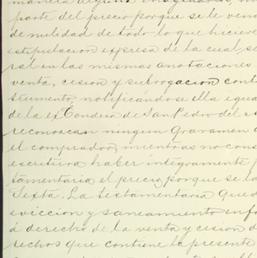 manera alguna
parte del precio porque se le ven
de nulidad de todo lo que hiciere
estipulacion expresa de la cual, se
en las mismas anotaciones
venta, cesion y subrogacion conte
strumento, notificándose ella igua
de la ex Condesa de San Pedro del
reconozcan ningun Gravamen
el comprador, mientras no cons
escritura haber integramente
tamentaria el precio porque se la
Sexta. La testamentaria queda
eviccion y saneamiento enfo
á derecho de la venta y cesion d
rechos que contiene la presente